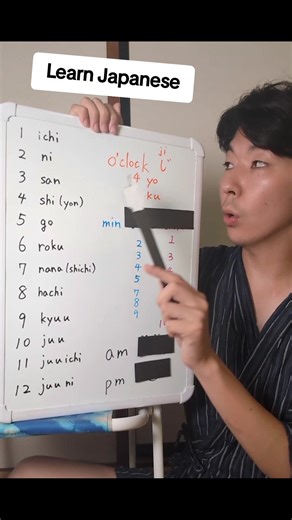 Learn Japanese
1 ichi
2 ni
3 san
4 shi (yon)
5 go
6 roku
7 nana (shichi)
8 hachi
9 kyuu
10 juu
11 juu ichi
12 juu ni
ji
o'clock じ
4 yo
ku
min
2 1
3 3
4
5
7
8
9
am
pm